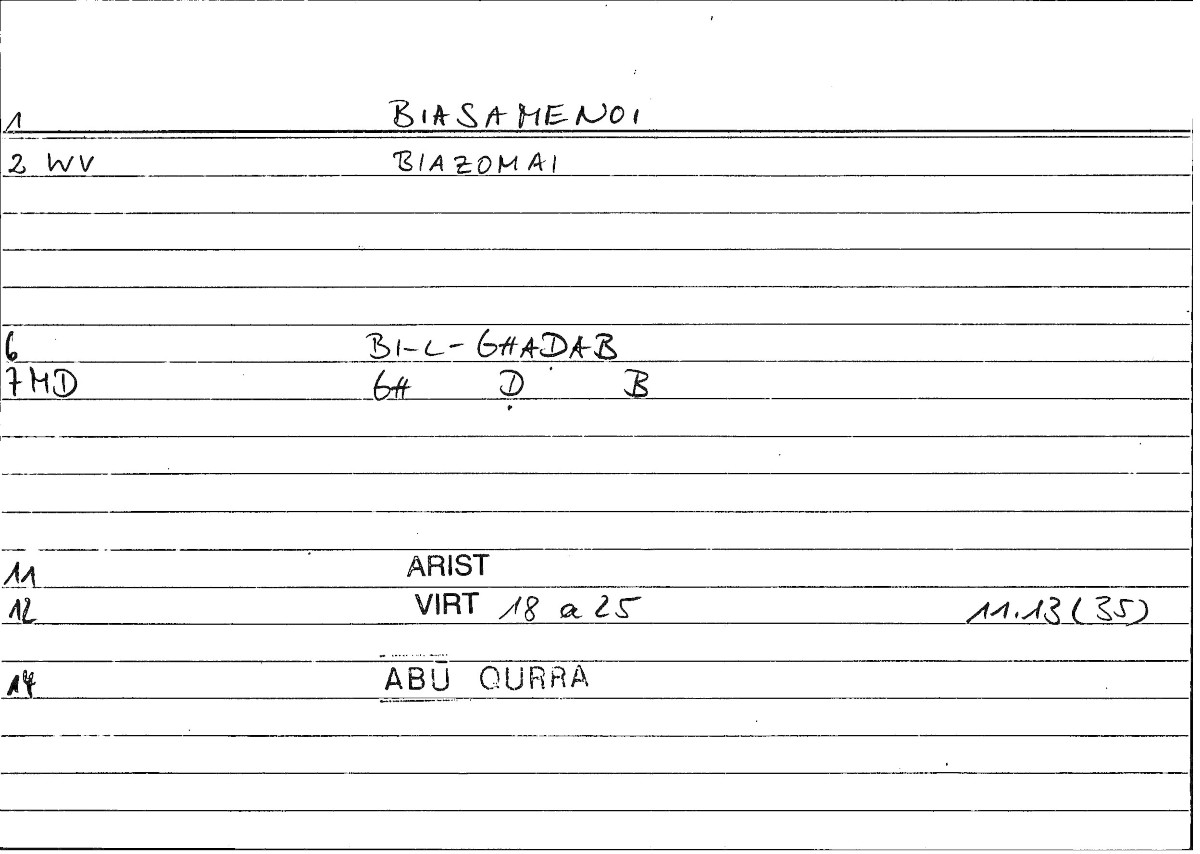 1 BIASAMENOI
2 WV BIAZOMAI
6 BI-L-GHAḌAB
7 MD GH Ḍ B
11 ARIST
12 VIRT 18 a 25 11.13 (35)
14 ABŪ QURRA